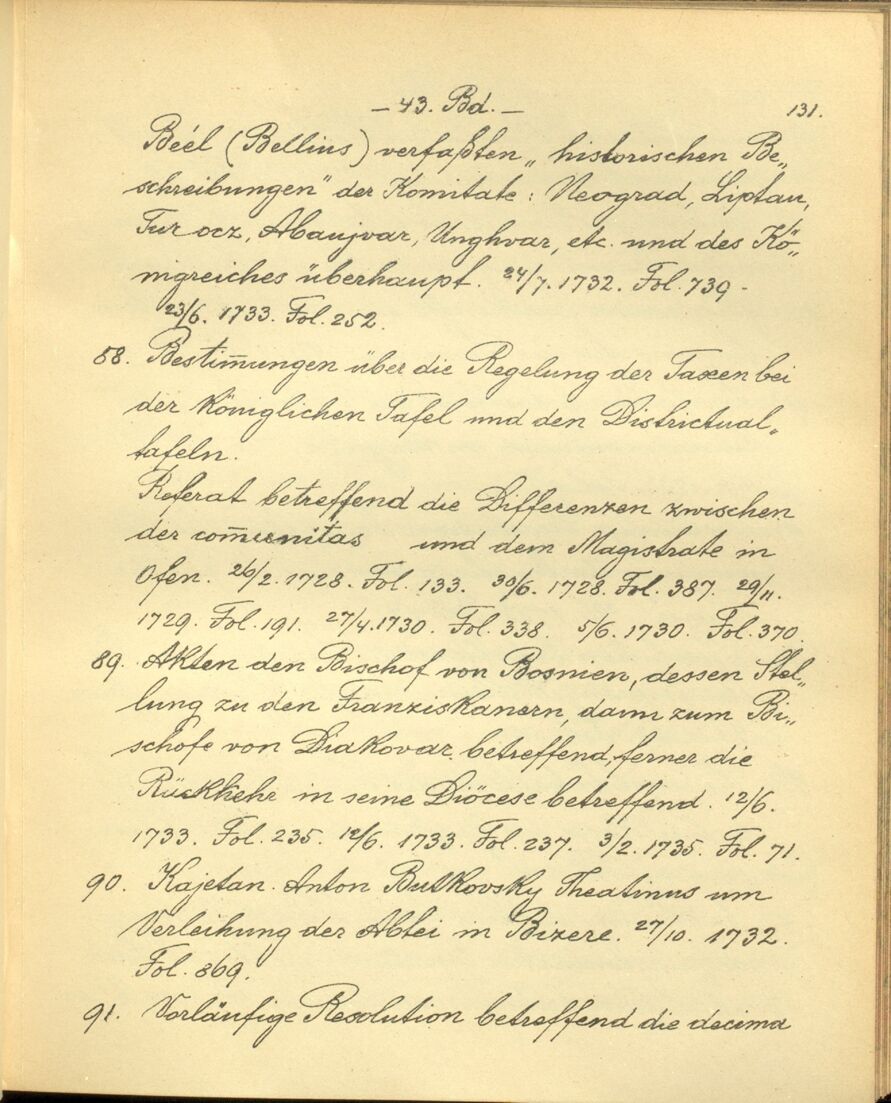 — 43. Bd. — 131.
Béel (Bellius) verfaßten „historischen Be„
schreibungen" der Komitate: Neograd, Liptau,
Turocz, Abaujvar, Unghvar, etc. und des Kö„
nigreiches überhaupt. 24/7. 1732. Fol. 739 -
23/6. 1733. Fol. 252.
88. Bestim̅ungen über die Regelung der Taxen bei
der königlichen Tafel und den Districtual„
tafeln.
Referat betreffend die Differenzen zwischen
der com̅unitas und dem Magistrate in
Ofen. 26/2. 1728. Fol. 133. 30/6. 1728. Fol. 387. 29/11.
1729. Fol. 191. 27/4. 1730. Fol. 338. 5/6. 1730. Fol. 370.
89. Akten den Bischof von Bosnien, dessen Stel„
lung zu den Franziskanern, dann zum Bi„
schofe von Diakovar betreffend, ferner die
Rückkehr in seine Diöcese betreffend. 12/6.
1733. Fol. 235. 12/6. 1733. Fol. 237. 3/2. 1735. Fol. 71.
90. Kajetan Anton Butkovsky Theatinus um
Verleihung der Abtei in Bizere. 27/10. 1732.
Fol. 869.
91. Vorläufige Resolution betreffend die decima